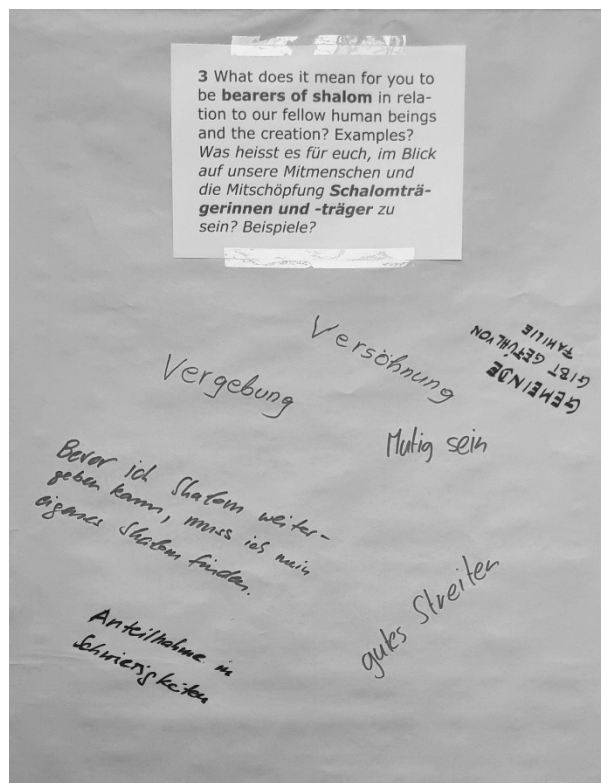 3 What does it mean for you to
be bearers of shalom in rela-
tion to our fellow human beings
and the creation? Examples?
Was heisst es für euch, im Blick
auf unsere Mitmenschen und
die Mitschöpfung Schalomträ-
gerinnen und -träger zu
sein? Beispiele?
Versöhnung
GEMEINDE
GIBT GEFÜHL VON
FAMILIE
Vergebung
Mutig sein
Bevor ich Shalom weiter-
geben kann, muss ich mein
eigenes Shalom finden.
gutes Streiten
Anteilnahme in
Schwierigkeiten